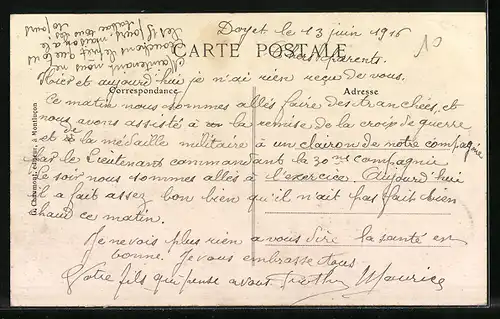 Doyet le 13 juin 1916
10
CARTE POSTALE
Chers parents.
Hier et aujourd'hui je n'ai rien reçu de vous.
Correspondance
Adresse
Ce matin nous sommes allés faire des tranchées, et
nous avons assisté à la remise de la croix de guerre
et de la médaille militaire à un clairon de notre compagnie
par le Lieutenant commandant la 30me compagnie
Le soir nous sommes allés à l'exercice. Aujourd'hui
il a fait assez bon bien qu'il n'ait pas fait bien
chaud ce matin.
Je ne vais plus rien à vous dire la santé est
bonne. Je vous embrasse tous
Votre fils qui pense à vous Maurice
Maintenant nous ne
touchons le prêt que tous
les 10 jours
tous les jours
Chaumont, éditeur, à Montluçon